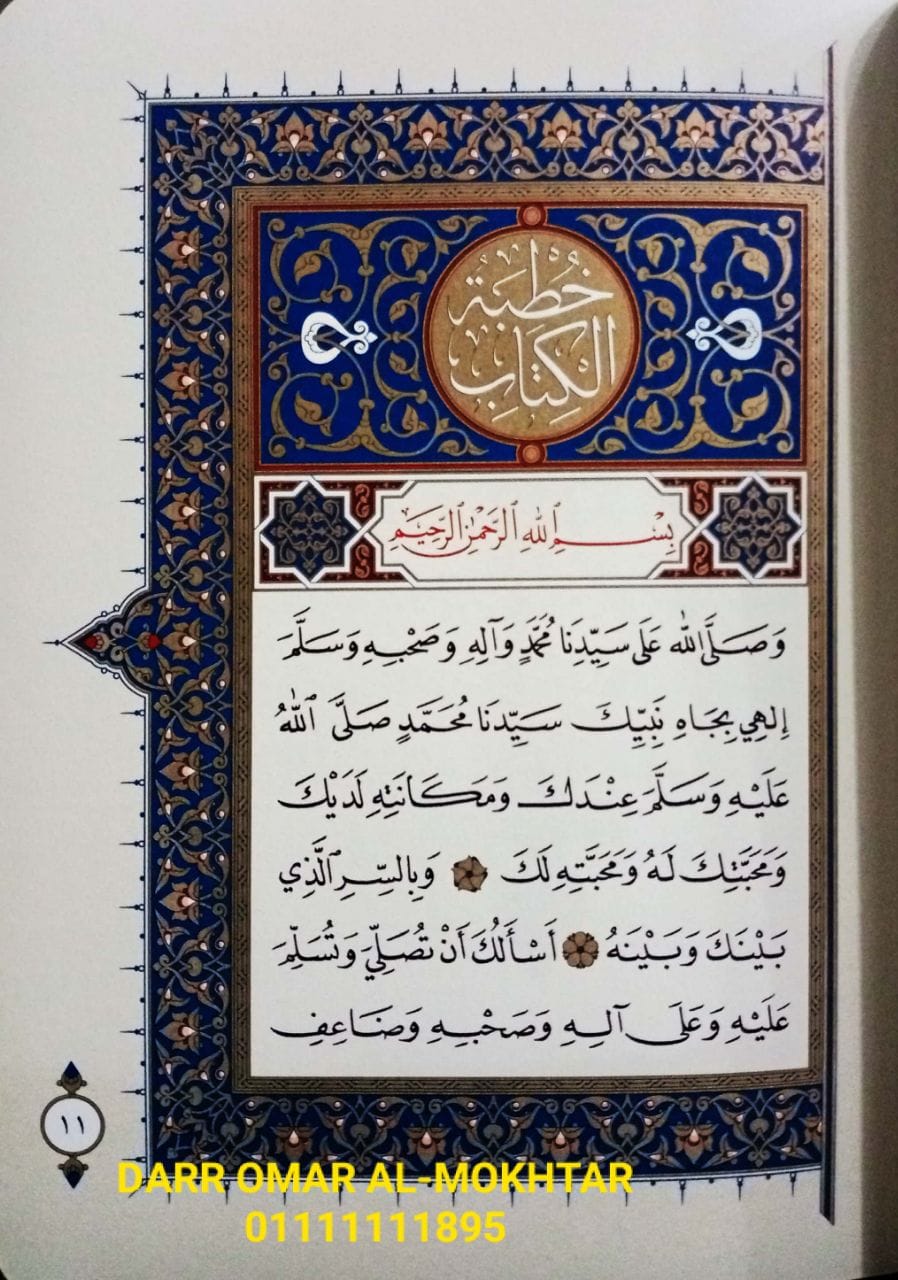 خُطْبَةُ
الْكِتَابِ
بِسْمِ ٱللهِ ٱلرَّحْمٰنِ ٱلرَّحِيمِ
وَصَلَّى اللهُ عَلَى سَيِّدِنَا مُحَمَّدٍ وَآلِهِ وَصَحْبِهِ وَسَلَّمَ
إِلهِي بِجَاهِ نَبِيِّكَ سَيِّدِنَا مُحَمَّدٍ صَلَّى ٱللهُ
عَلَيْهِ وَسَلَّمَ عِنْدَكَ وَمَكَانَتِهِ لَدَيْكَ
وَمَحَبَّتِكَ لَهُ وَمَحَبَّتِهِ لَكَ وَبِالسِّرِ ٱلَّذِي
بَيْنَكَ وَبَيْنَهُ أَسْأَلُكَ أَنْ تُصَلِّيَ وَتُسَلِّمَ
عَلَيْهِ وَعَلَى آلِهِ وَصَحْبِهِ وَضَاعِفِ
١١
DARR OMAR AL-MOKHTAR
01111111895